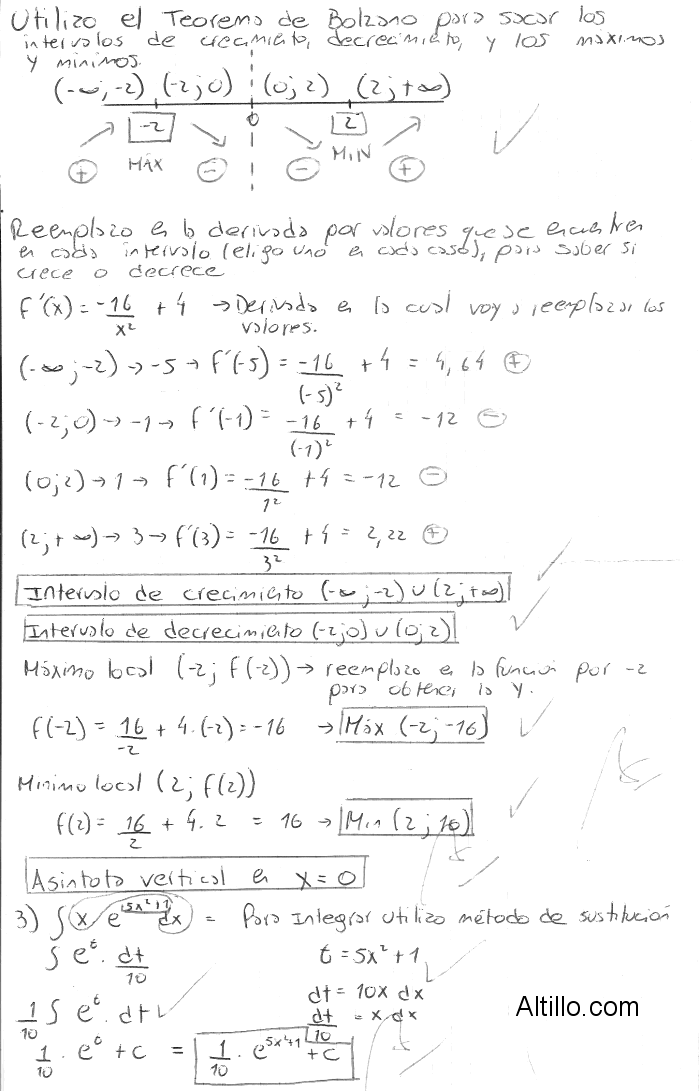 Utilizo el Teorema de Bolzano para sacar los
intervalos de crecimiento, decrecimiento, y los máximos
y mínimos.
(-∞;-2) (-2;0) (0;2) (2;+∞)
-2 0 2
MÁX MIN
+ - - +
Reemplazo en la derivada por valores que se encuentren
en cada intervalo (eligo uno en cada caso), para saber si
crece o decrece
f'(x) = -16/x² + 4 → Derivada en la cual voy a reemplazar los
valores.
(-∞;-2) → -5 → f'(-5) = -16/(-5)² + 4 = 4,64 +
(-2;0) → -1 → f'(-1) = -16/(-1)² + 4 = -12 -
(0;2) → 1 → f'(1) = -16/1² + 4 = -12 -
(2;+∞) → 3 → f'(3) = -16/3² + 4 = 2,22 +
Intervalo de crecimiento (-∞;-2) ∪ (2;+∞)
Intervalo de decrecimiento (-2;0) ∪ (0;2)
Máximo local (-2; f(-2)) → reemplazo en la función por -2
para obtener la y.
f(-2) = 16/-2 + 4.(-2) = -16 → Máx (-2;-16)
Mínimo local (2; f(2))
f(2) = 16/2 + 4.2 = 16 → Min (2;16)
Asíntota vertical en x=0
3) ∫ x e^(5x²+1) dx = Para integrar utilizo método de sustitución
∫ e^t . dt/10 t = 5x²+1
1/10 ∫ e^t . dt dt = 10x dx
dt/10 = x dx
1/10 . e^t + c = 1/10 . e^(5x²+1) + c
Altillo.com